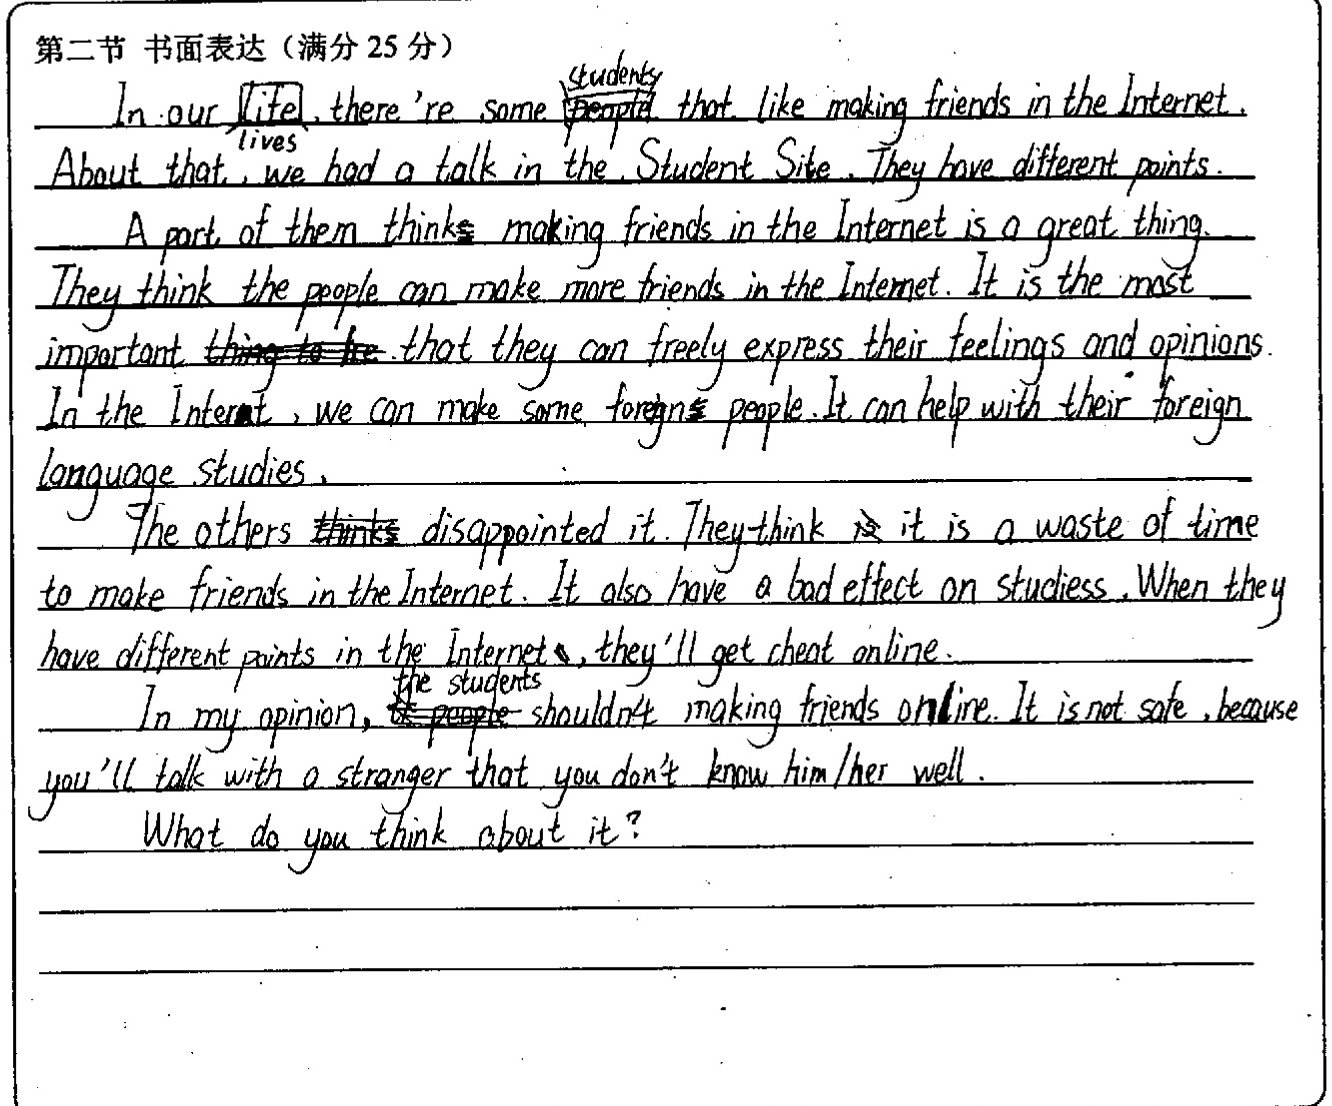 第二节 书面表达（满分 25 分）
students
In our life, there're some people that like making friends in the Internet.
lives
About that, we had a talk in the Student Site. They have different points.
A part of them thinks making friends in the Internet is a great thing.
They think the people can make more friends in the Internet. It is the most
important thing to be that they can freely express their feelings and opinions.
In the Internet, we can make some foregns people. It can help with their foreign
language studies.
The others thinks disappointed it. They think is it is a waste of time
to make friends in the Internet. It also have a bad effect on studiess. When they
have different points in the Internet, they'll get cheat online.
the students
In my opinion, people shouldn't making friends online. It is not safe, because
you'll talk with a stranger that you don't know him/her well.
What do you think about it?